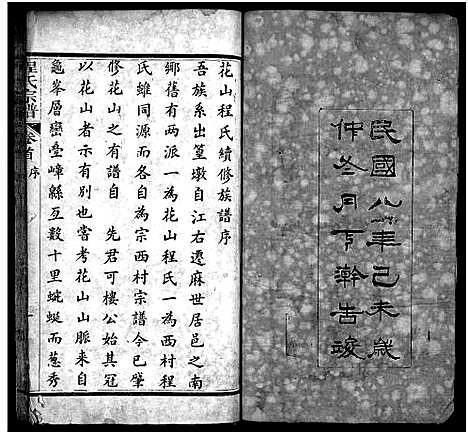 民國八年己未歲
仲冬月下澣告竣
花山程氏續修族譜序
吾族系出篁墩自江右遷麻世居邑之南
鄉舊有兩派一為花山程氏一為西村程
氏雖同源而各自為宗西村宗譜今已肇
修花山之有譜自　先君可樓公始其冠
以花山者示有別也嘗考花山山脈來自
龜峯層巒疊嶂縣亙數十里蜿蜒而蔥秀
程氏宗譜
卷首
序
一